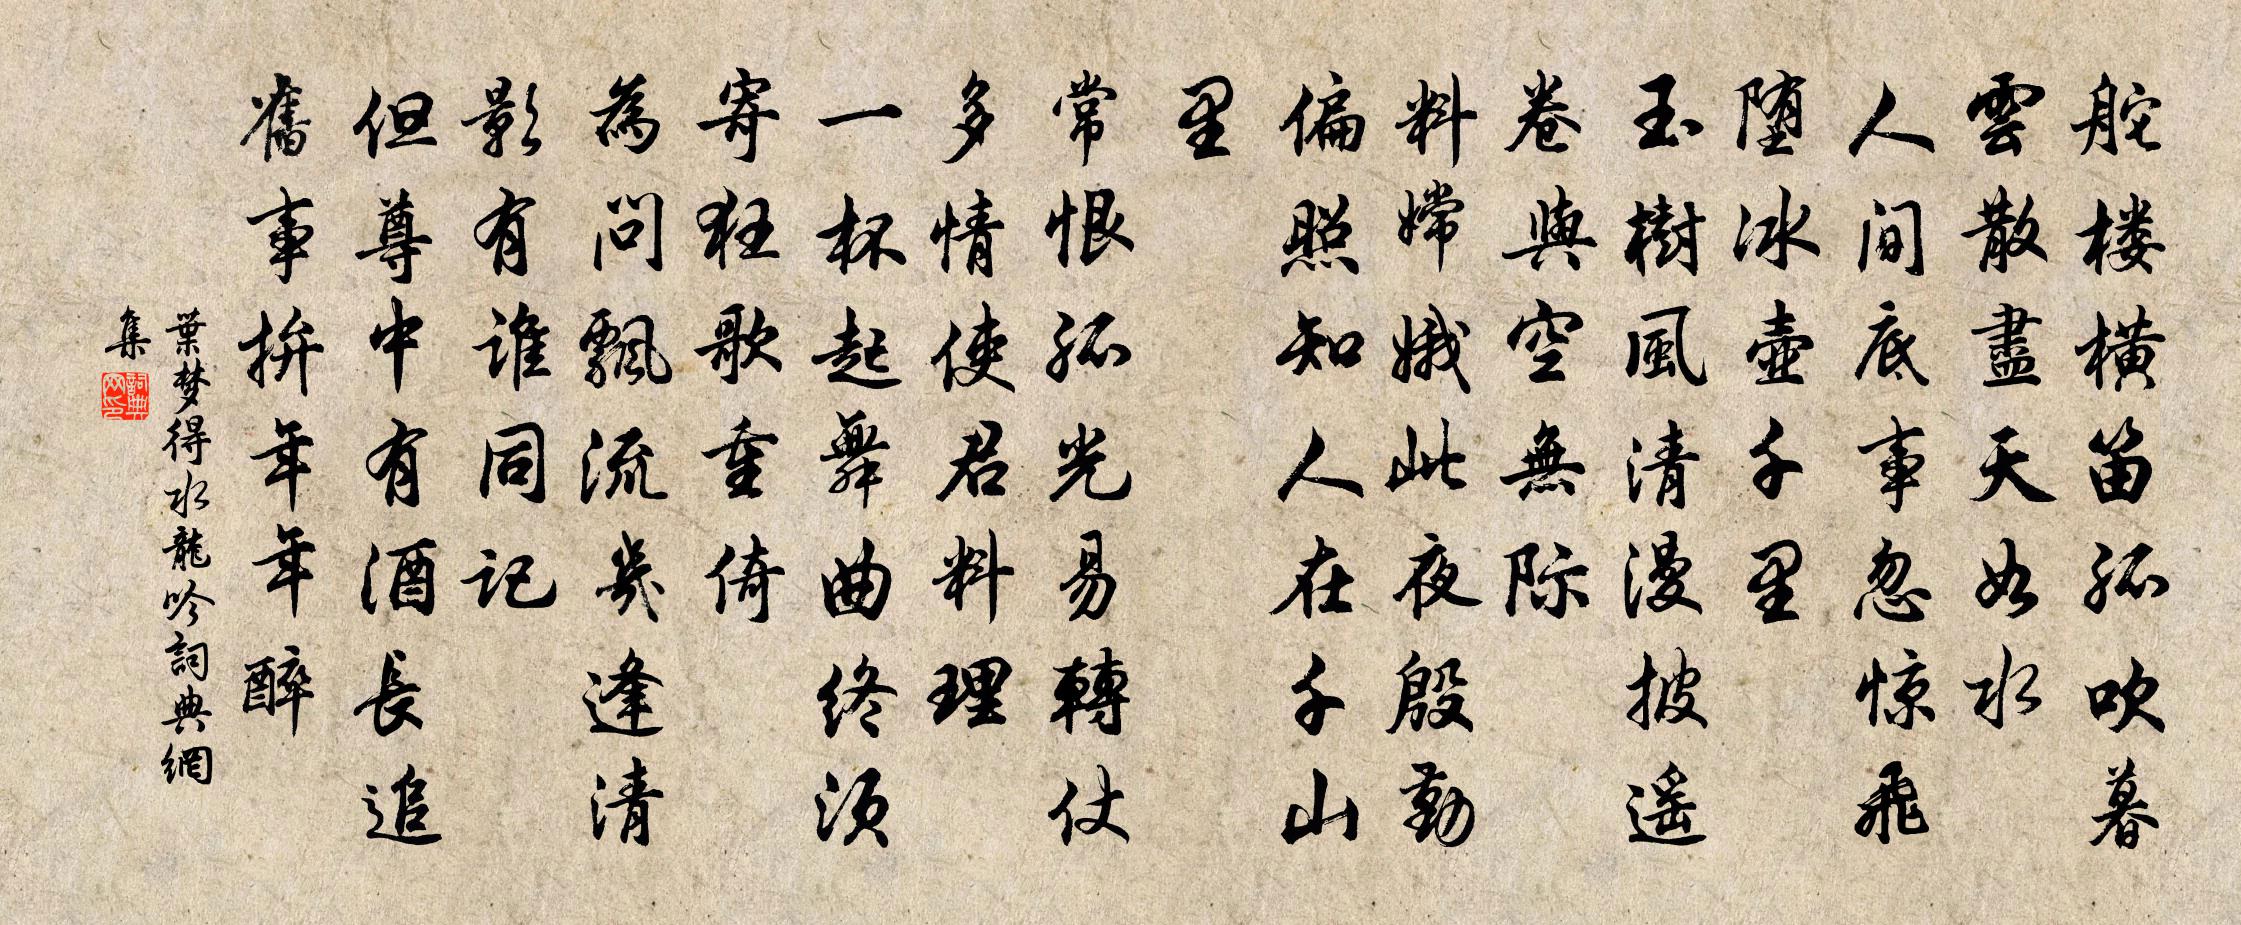 舵楼横笛孤吹暮
雲散盡天如水
人间底事忽惊飛
堕冰壶千里
玉樹風清漫披遥
卷與空無际
料嫦娥此夜殷勤
偏照知人在千山
里
常恨孤光易轉仗
多情使君料理
一杯起舞曲终须
寄狂歌重倚
為問飄流幾逢清
影有谁同记
但尊中有酒長追
舊事拚年年醉
葉梦得水龍吟詞典網
集
詞典
网印